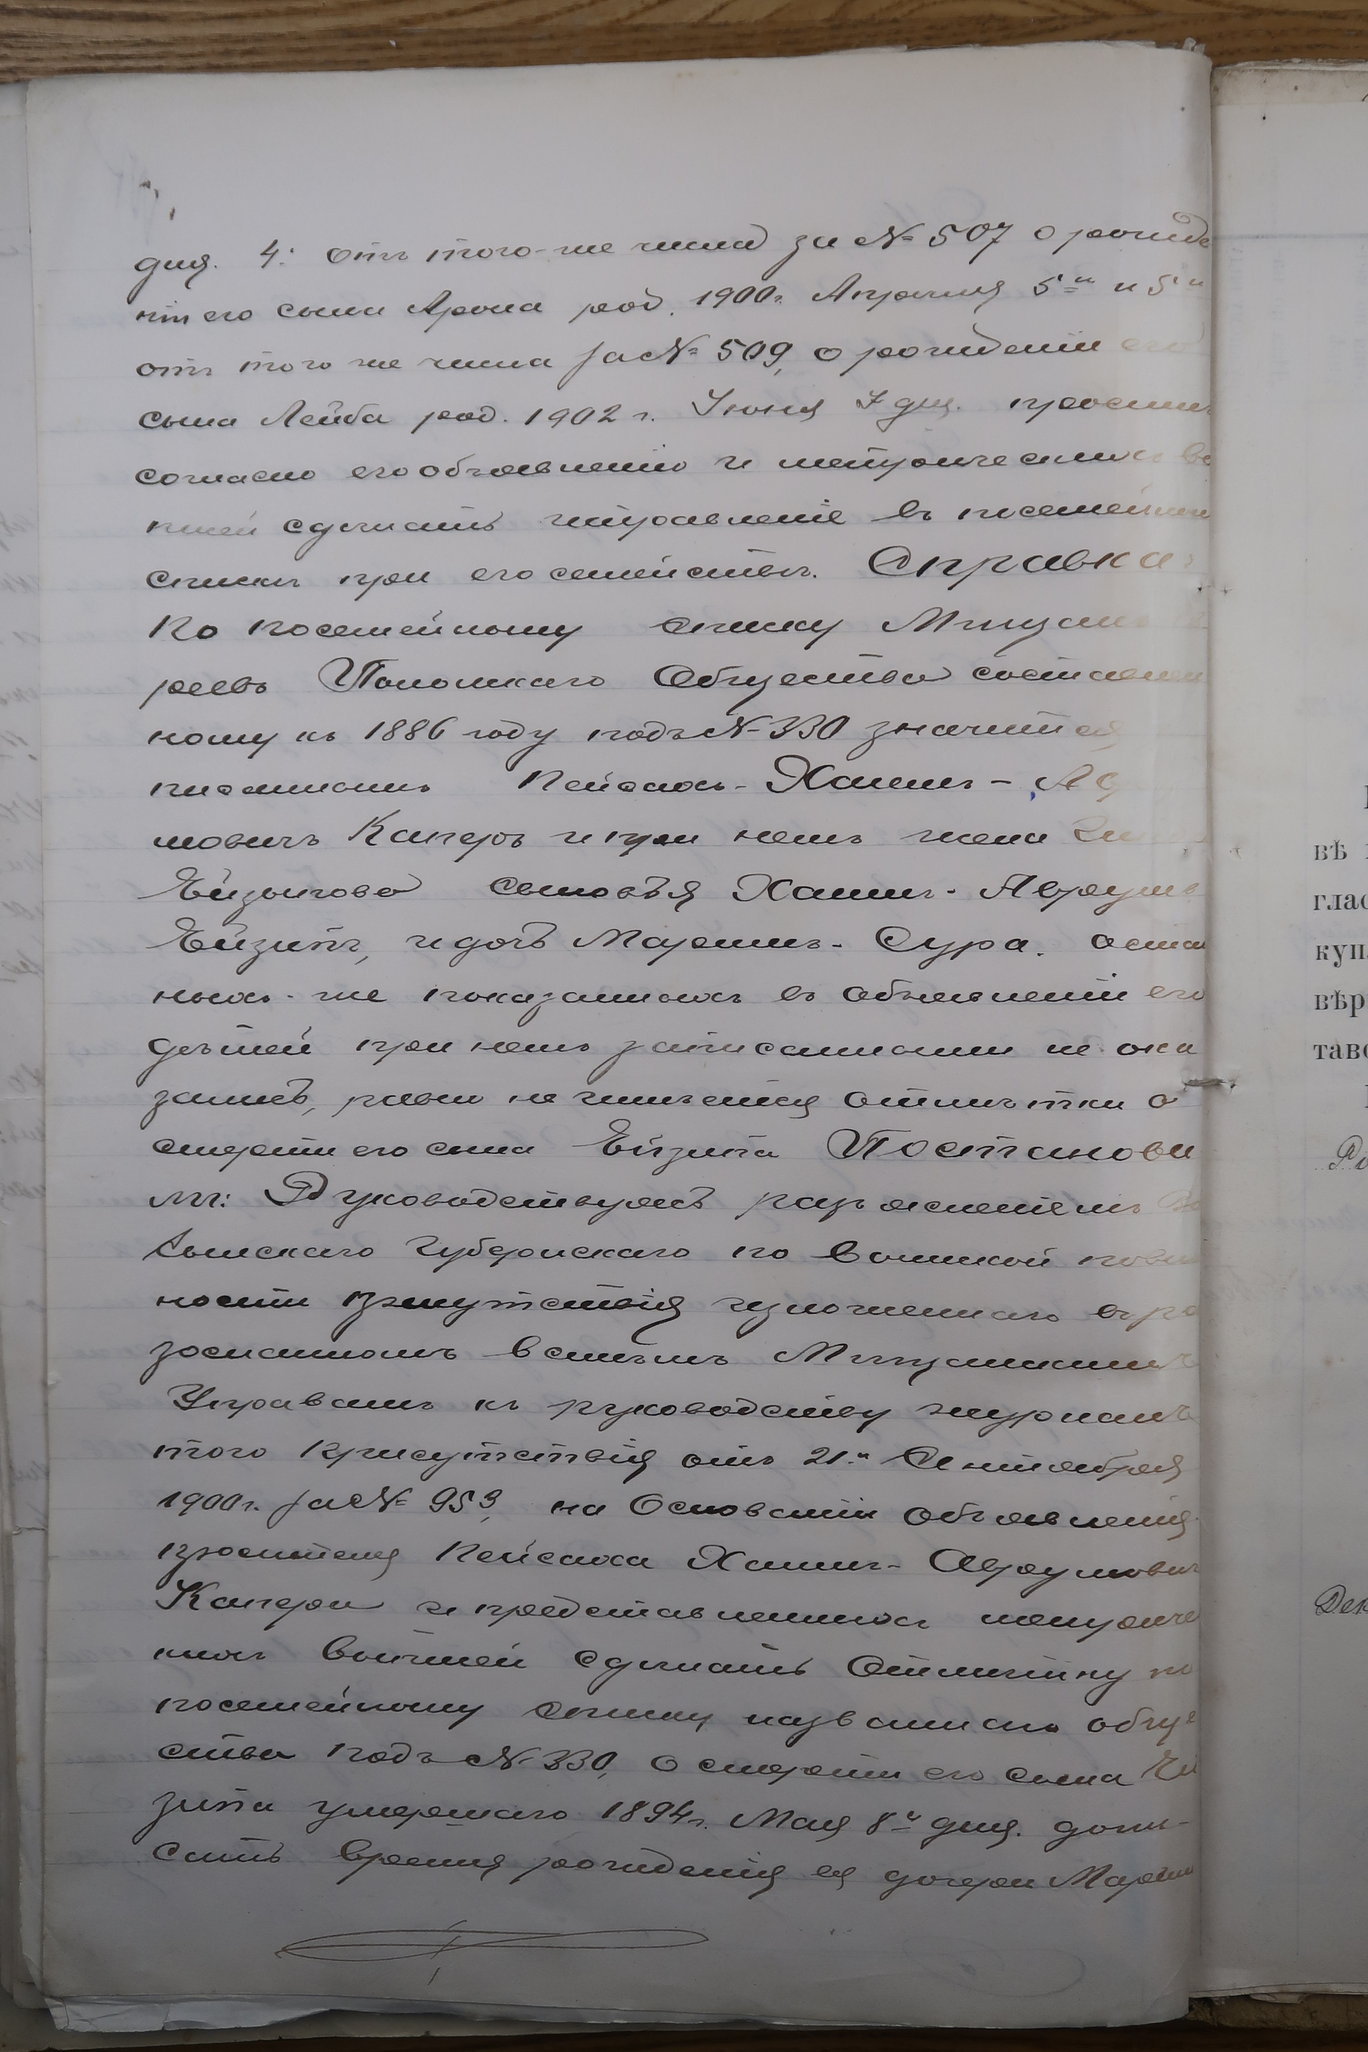 дня. 4: отъ того-же числа за № 507 о рожде
ніи его сына Арона род. 1900 г. Апрѣля 5го и 5е
отъ того же числа за № 509, о рожденіи его
сына Лейба род. 1902 г. Іюня 7 дня. проситъ
согласно его объявленію и метрическихъ вы
писей сдѣлать исправленіе въ посемейномъ
спискѣ при его семействѣ. Справка:
По посемейному списку Мѣщанъ Ев
реевъ Полонскаго Общества составлен
ному къ 1886 году подъ № 330 значится
писаннымъ Пейсахъ-Хаимъ-Авру
мовичъ Каперъ и при немъ жена
Ейзыкова сыновья Хаимъ-Аврумъ
Ейзикъ, и дочь Маріимъ-Сура. осталь
ныхъ-же показанныхъ въ объявленіи его
дѣтей при немъ записанными не ока
залось, равно не имѣется отмѣтки о
смерти его сына Ейзика Постанови
ли: Руководствуясь разъясненіемъ Во
лынскаго Губернскаго по воинской повин
ности присутствія изложеннаго въ ра
зосланномъ всѣмъ Мѣщанскимъ
Управамъ къ руководству журналѣ
того присутствія отъ 21го Сентября
1900 г. за № 953, на основаніи объявленія
просителя Пейсаха Хаимъ-Аврумовича
Капера и представленныхъ метриче
кихъ выписей сдѣлать отмѣтку по
посемейному списку названнаго обще
ства подъ № 330, о смерти его сына Ей
зика умершаго 1894 г. Мая 8го дня. допи-
сать время рожденія ея дочери Маріимъ
вѣ
глас
куп
вѣр
тав
Дек